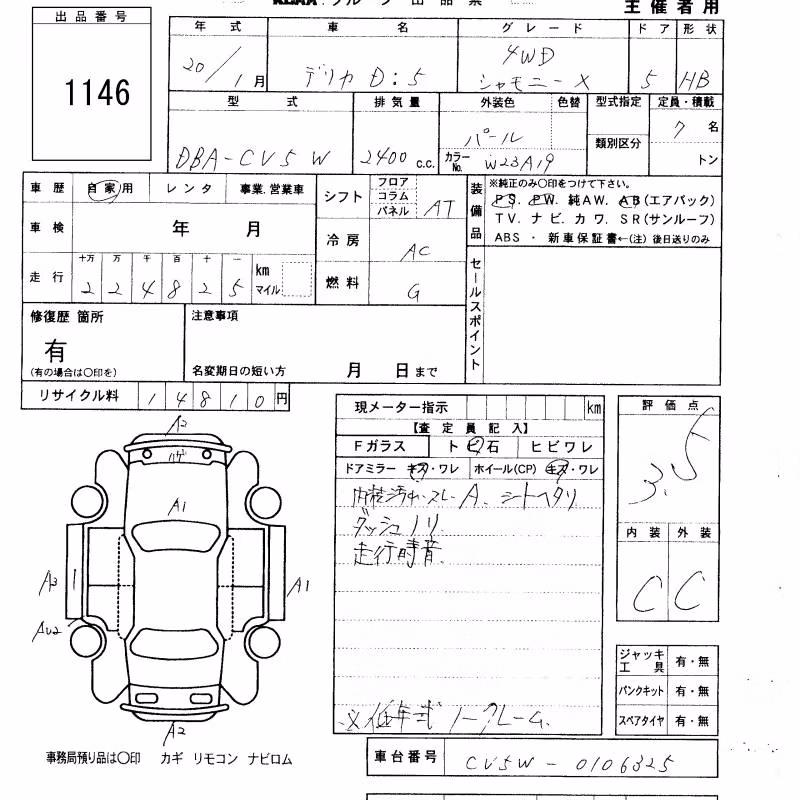 主催者用
出品番号
1146
年式 車名 グレード ドア 形状
20/1月 デリカD:5 4WD シャモニーX 5 HB
型式 排気量 外装色 色替 型式指定 定員・積載
DBA-CV5W 2400c.c. パール カラーNo. W23A19 類別区分 7名 トン
車歴 自家用 レンタ 事業.営業車
車検 年 月
走行 十万 万 千 百 十 一 km マイル
2 2 4 8 2 5
シフト フロア コラム パネル AT
冷房 AC
燃料 G
装備品 ※純正のみ○印をつけて下さい。
PS. PW. 純AW. AB(エアバック)
TV. ナビ. カワ. SR(サンルーフ)
ABS ・ 新車保証書←(注)後日送りのみ
セールスポイント
修復歴 箇所
有
(有の場合は○印を)
注意事項
名変期日の短い方 月 日まで
リサイクル料 14810円
現メーター指示 km
【査定員記入】
Fガラス トビ石 ヒビワレ
ドアミラー キズ・ワレ ホイール(CP) キズ・ワレ
内装汚れ・スレA、シートヘタリ
ダッシュノリ
走行時音
※低年式 ノークレーム.
評価点
3.5
内装 外装
C C
ジャッキ工具 有・無
パンクキット 有・無
スペアタイヤ 有・無
A2
ハゲ
A1
A3
A1
AU2
A2
事務局預り品は○印 カギ リモコン ナビロム
車台番号 CV5W-0106325